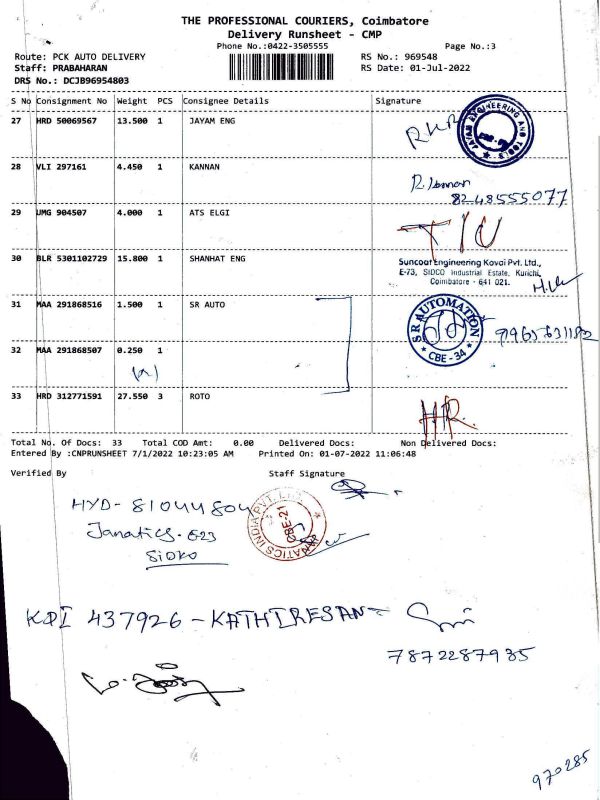 THE PROFESSIONAL COURIERS, Coimbatore
Delivery Runsheet - CMP
Phone No.:0422-3505555 Page No.:3
Route: PCK AUTO DELIVERY RS No.: 969548
Staff: PRABAHARAN RS Date: 01-Jul-2022
DRS No.: DCJB96954803
S No Consignment No Weight PCS Consignee Details Signature
27 HRD 50069567 13.500 1 JAYAM ENG
JAYAM ENGINEERING AND TOOLS
28 VLI 297161 4.450 1 KANNAN
8248555077
29 UMG 904507 4.000 1 ATS ELGI
30 BLR 5301102729 15.800 1 SHANHAT ENG
Suncoat Engineering Kovai Pvt. Ltd.,
E-73, SIDCO Industrial Estate, Kurichi,
Coimbatore - 641 021.
31 MAA 291868516 1.500 1 SR AUTO
SR AUTOMATION
* CBE - 34 *
32 MAA 291868507 0.250 1
33 HRD 312771591 27.550 3 ROTO
Total No. Of Docs: 33 Total COD Amt: 0.00 Delivered Docs: Non Delivered Docs:
Entered By :CNPRUNSHEET 7/1/2022 10:23:05 AM Printed On: 01-07-2022 11:06:48
Verified By Staff Signature
HYD- 81044804
Janatics. E23
SIDKO
JANATICS INDIA PVT. LTD
CBE-21
KDI 437926 - KATHIRESAN -
7872287935
970285